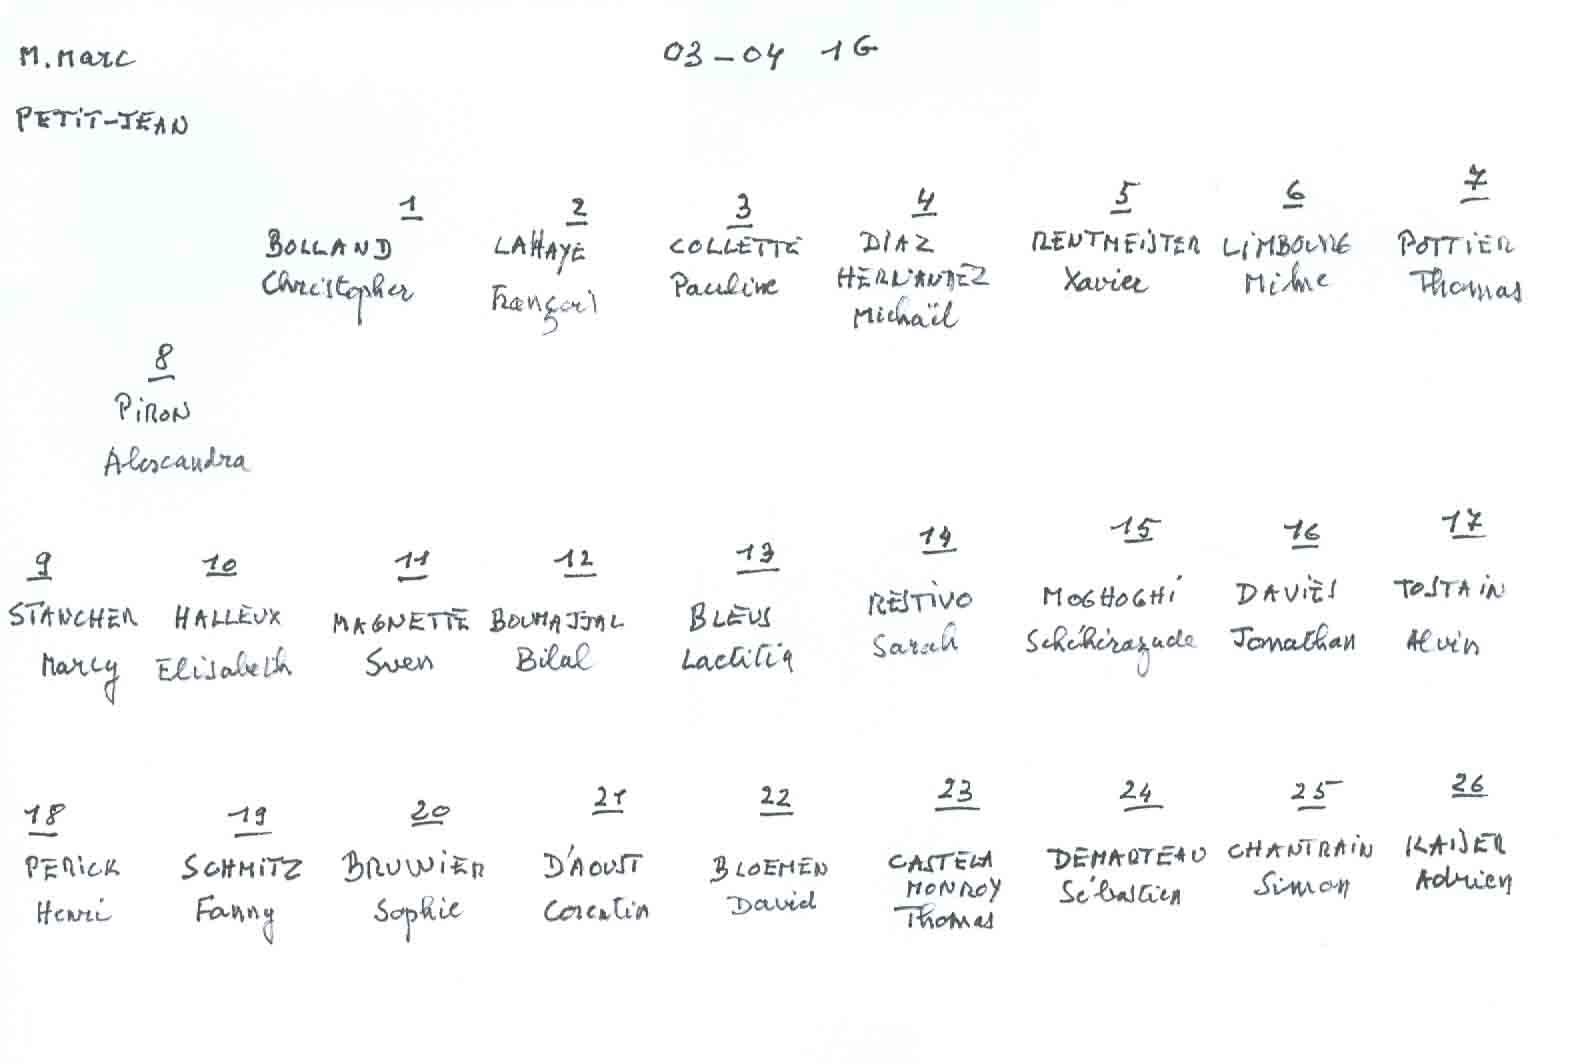 M. Marc
03-04 1G
PETIT-JEAN
1 2 3 4 5 6 7
BOLLAND LAHAYE COLLETTE DIAZ RENTMEISTER LIMBOURG POTTIER
Christopher François Pauline HERNANDEZ Xavier Thomas
Michaïl
8
PIRON
Alexandra
9 10 11 12 13 14 15 16 17
STANCHER HALLEUX MAGNETTE BOUHAJJAL BLEUS RESTIVO MOGHOGHI DAVIES TOSTAIN
Marcy Elisabeth Sven Bilal Laetitia Sarah Schéhérazade Jonathan Alvin
18 19 20 21 22 23 24 25 26
PERICK SCHMITZ BRUWIER D'AOUST BLOEMEN CASTELA DEMARTEAU CHANTRAIN KAISER
Henri Fanny Sophie Corentin David MONROY Sébastien Simon Adrien
Thomas